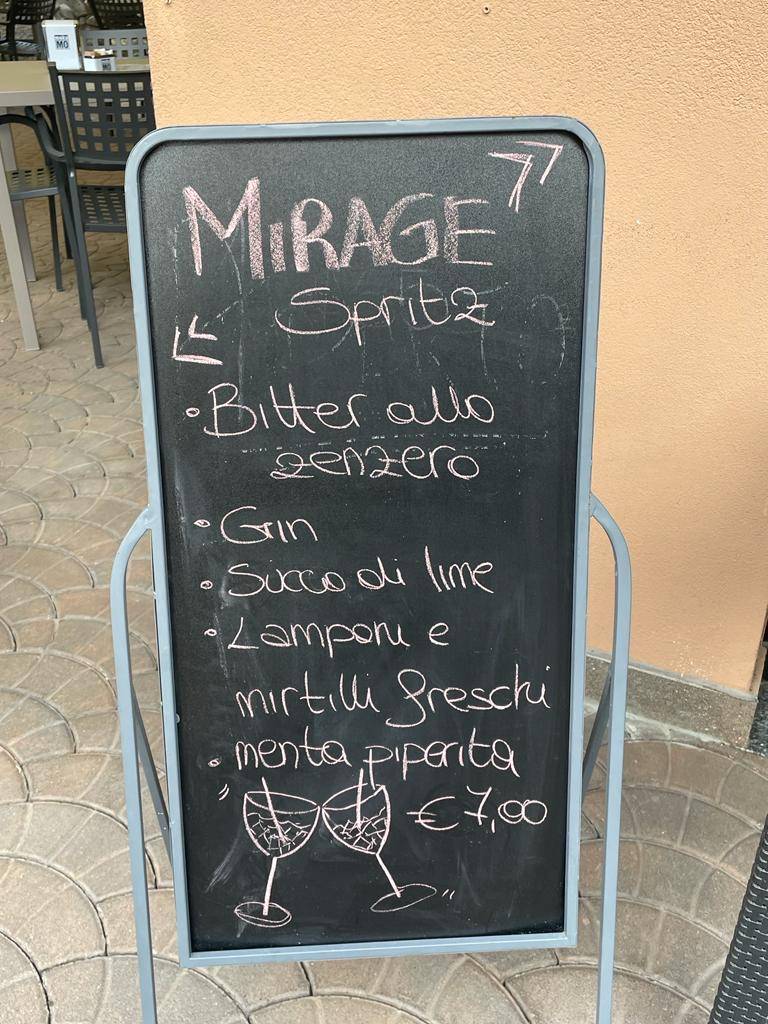 MO
MIRAGE
Spritz
• Bitter allo
zenzero
• Gin
• Succo di lime
• Lamponi e
mirtilli freschi
• menta piperita
€7,00